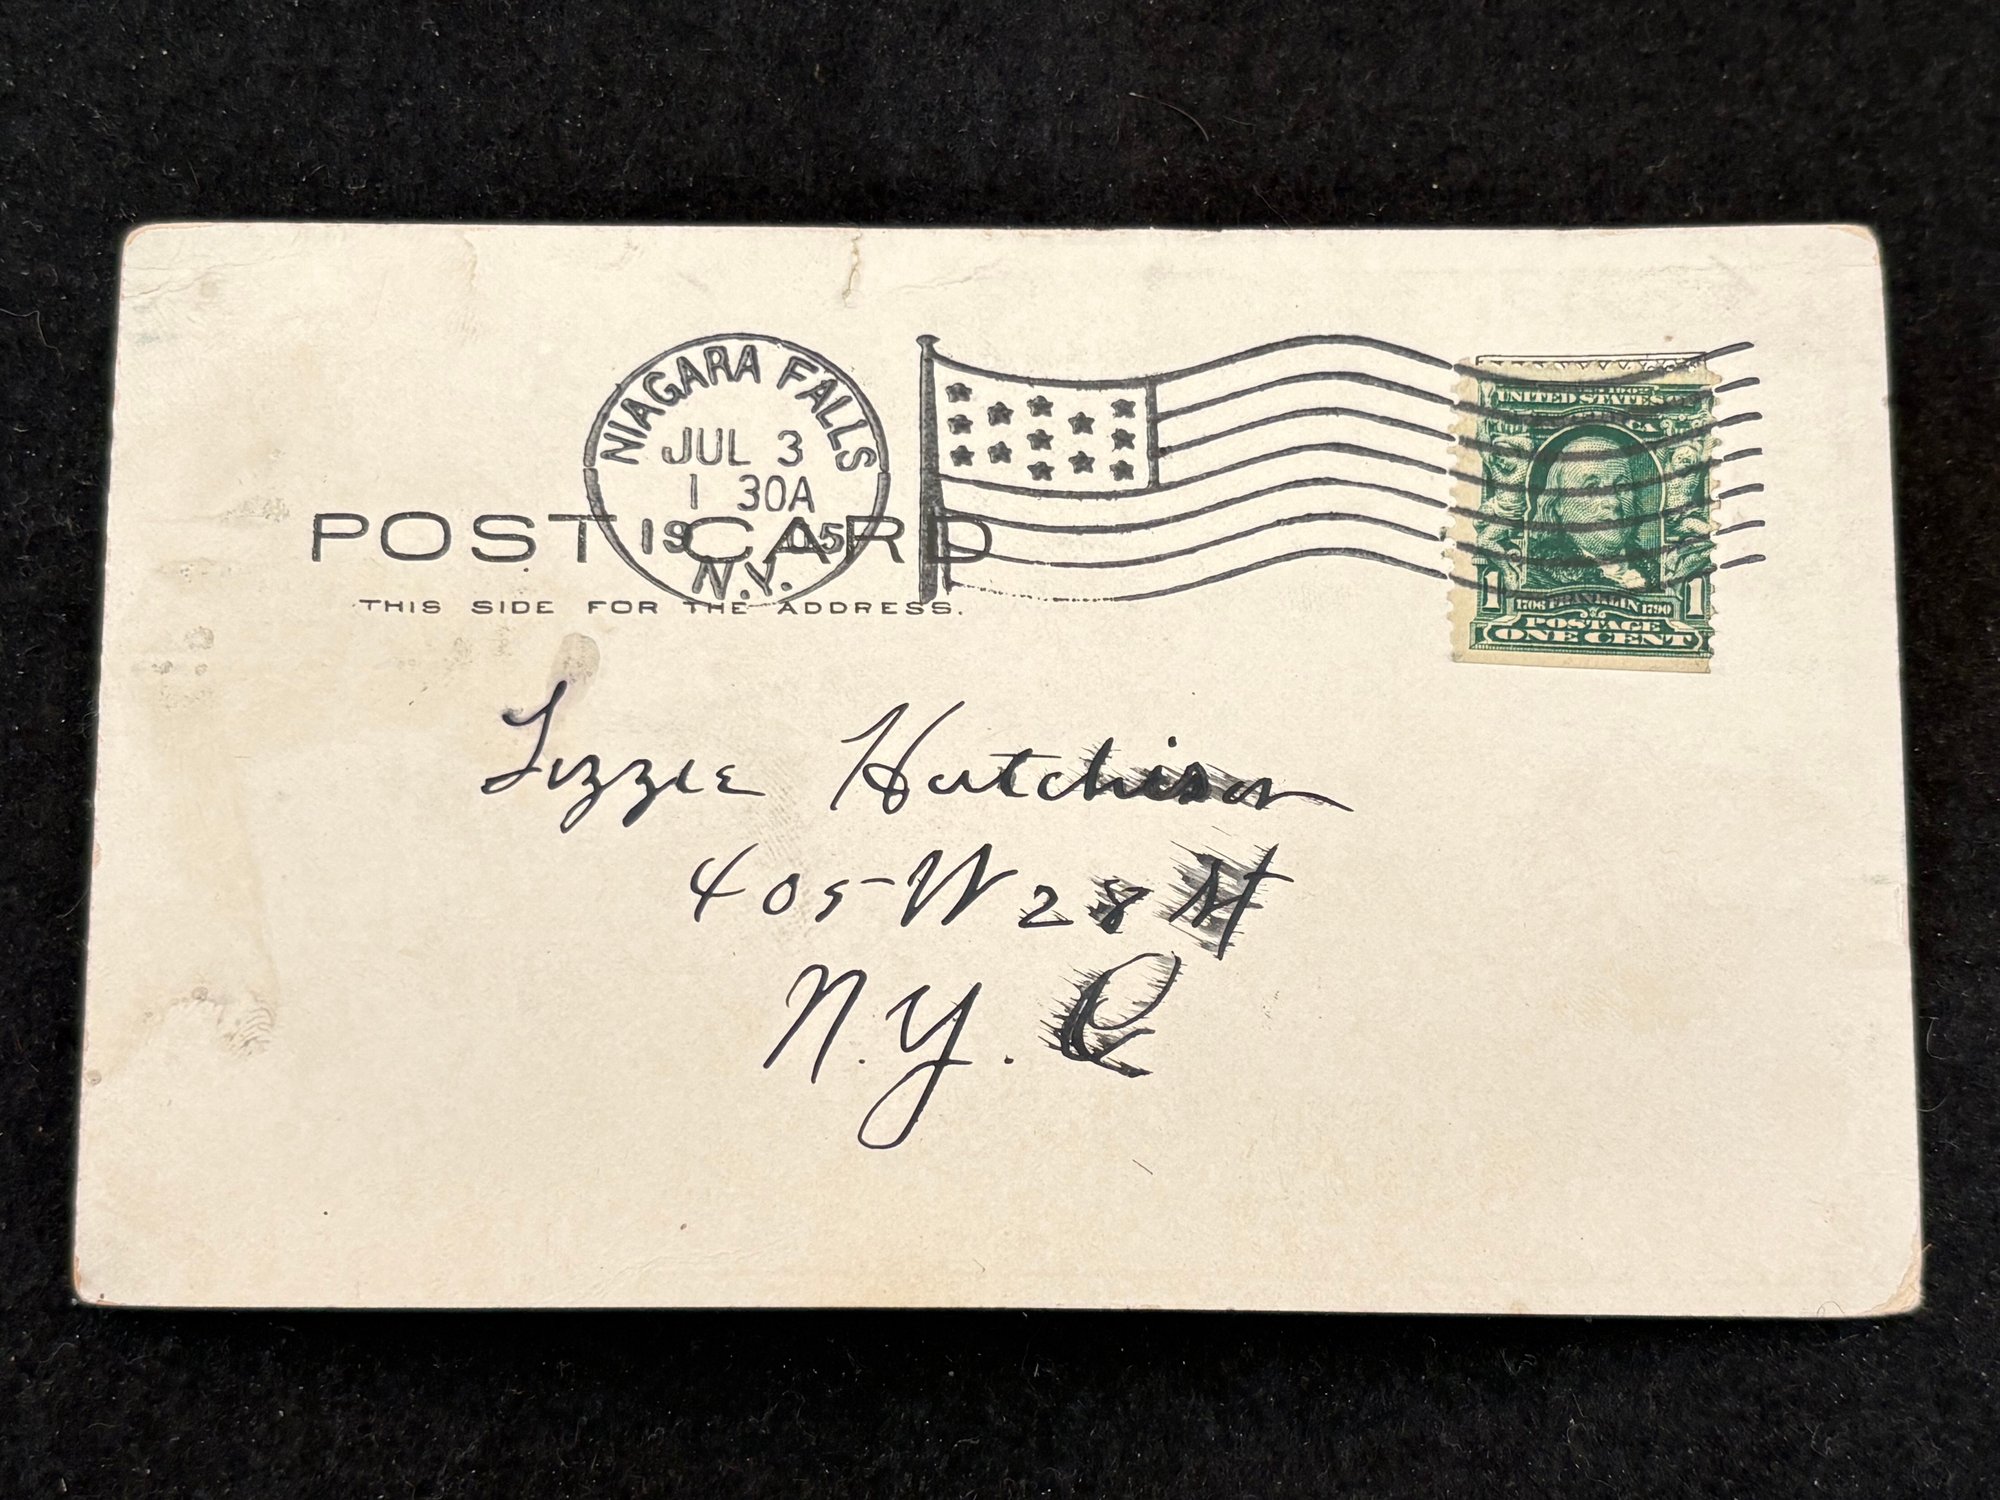 NIAGARA FALLS
JUL 3
1 30A
1905
N.Y.
POST CARD
THIS SIDE FOR THE ADDRESS.
UNITED STATES
1 1706 FRANKLIN 1790 1
POSTAGE
ONE CENT
Lizzie Hutchison
405 W 28 St
N.Y. C